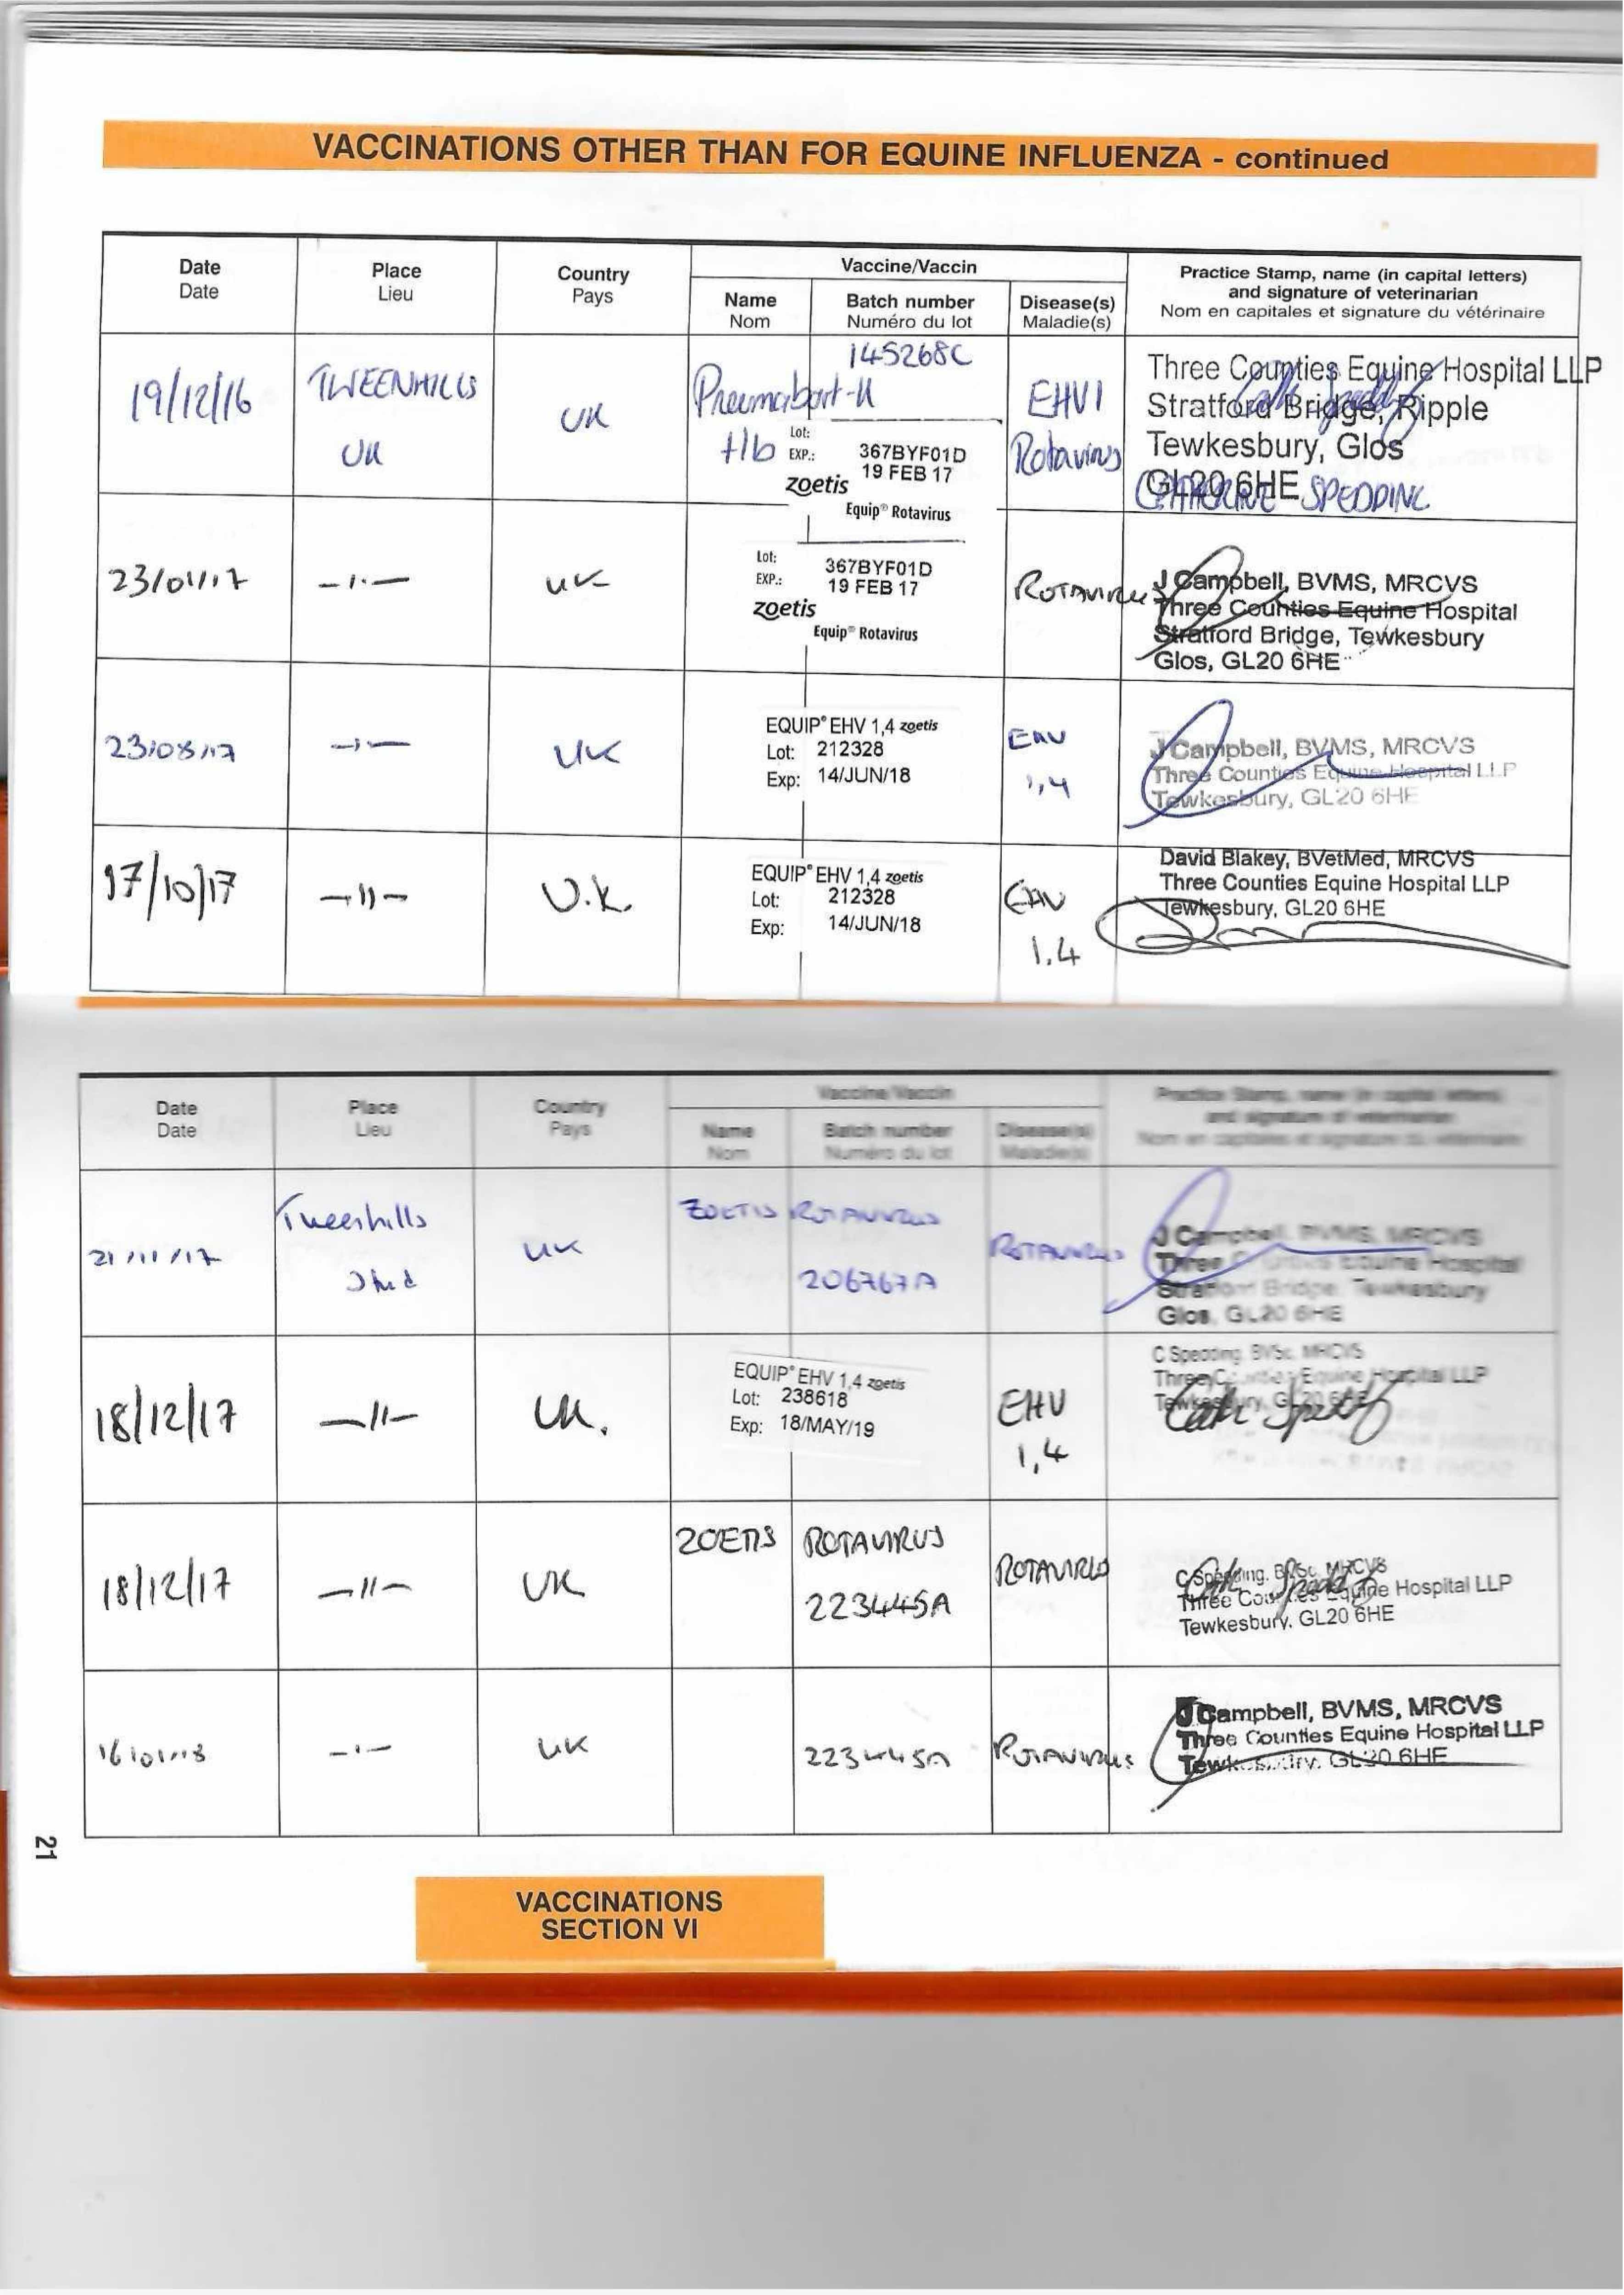 VACCINATIONS OTHER THAN FOR EQUINE INFLUENZA - continued
Date
Date
Place
Lieu
Country
Pays
Vaccine/Vaccin
Name
Nom
Batch number
Numéro du lot
Disease(s)
Maladie(s)
Practice Stamp, name (in capital letters)
and signature of veterinarian
Nom en capitales et signature du vétérinaire
19/12/16
TWEENHILLS
UK
UK
Pneumabort-K
+1b
145268C
Lot: 367BYF01D
EXP.: 19 FEB 17
zoetis
Equip® Rotavirus
EHV1
Rotavirus
Three Counties Equine Hospital LLP
Stratford Bridge, Ripple
Tewkesbury, Glos
GL20 6HE
CATHERINE SPEDDING
23/01/17
-1-
UK
Lot: 367BYF01D
EXP.: 19 FEB 17
zoetis
Equip® Rotavirus
ROTAVIRUS
J Campbell, BVMS, MRCVS
Three Counties Equine Hospital
Stratford Bridge, Tewkesbury
Glos, GL20 6HE
23/08/17
-1-
UK
EQUIP® EHV 1,4 zoetis
Lot: 212328
Exp: 14/JUN/18
EHV
1,4
J Campbell, BVMS, MRCVS
Three Counties Equine Hospital LLP
Tewkesbury, GL20 6HE
17/10/17
-11-
U.K.
EQUIP® EHV 1,4 zoetis
Lot: 212328
Exp: 14/JUN/18
EHV
1.4
David Blakey, BVetMed, MRCVS
Three Counties Equine Hospital LLP
Tewkesbury, GL20 6HE
Date
Date
Place
Lieu
Country
Pays
Vaccine/Vaccin
Name
Nom
Batch number
Numéro du lot
Disease(s)
Maladie(s)
Practice Stamp, name (in capital letters)
and signature of veterinarian
Nom en capitales et signature du vétérinaire
21/11/17
Tweenhills
Stud
UK
ZOETIS ROTAVIRUS
206767A
ROTAVIRUS
J Campbell, BVMS, MRCVS
Three Counties Equine Hospital
Stratford Bridge, Tewkesbury
Glos, GL20 6HE
18/12/17
-11-
UK.
EQUIP® EHV 1,4 zoetis
Lot: 238618
Exp: 18/MAY/19
EHV
1,4
C Spedding, BVSc, MRCVS
Three Counties Equine Hospital LLP
Tewkesbury, GL20 6HE
18/12/17
-11-
UK
ZOETIS ROTAVIRUS
223445A
ROTAVIRUS
C Spedding, BVSc, MRCVS
Three Counties Equine Hospital LLP
Tewkesbury, GL20 6HE
16/01/18
-1-
UK
223445A
ROTAVIRUS
J Campbell, BVMS, MRCVS
Three Counties Equine Hospital LLP
Tewkesbury, GL20 6HE
21
VACCINATIONS
SECTION VI